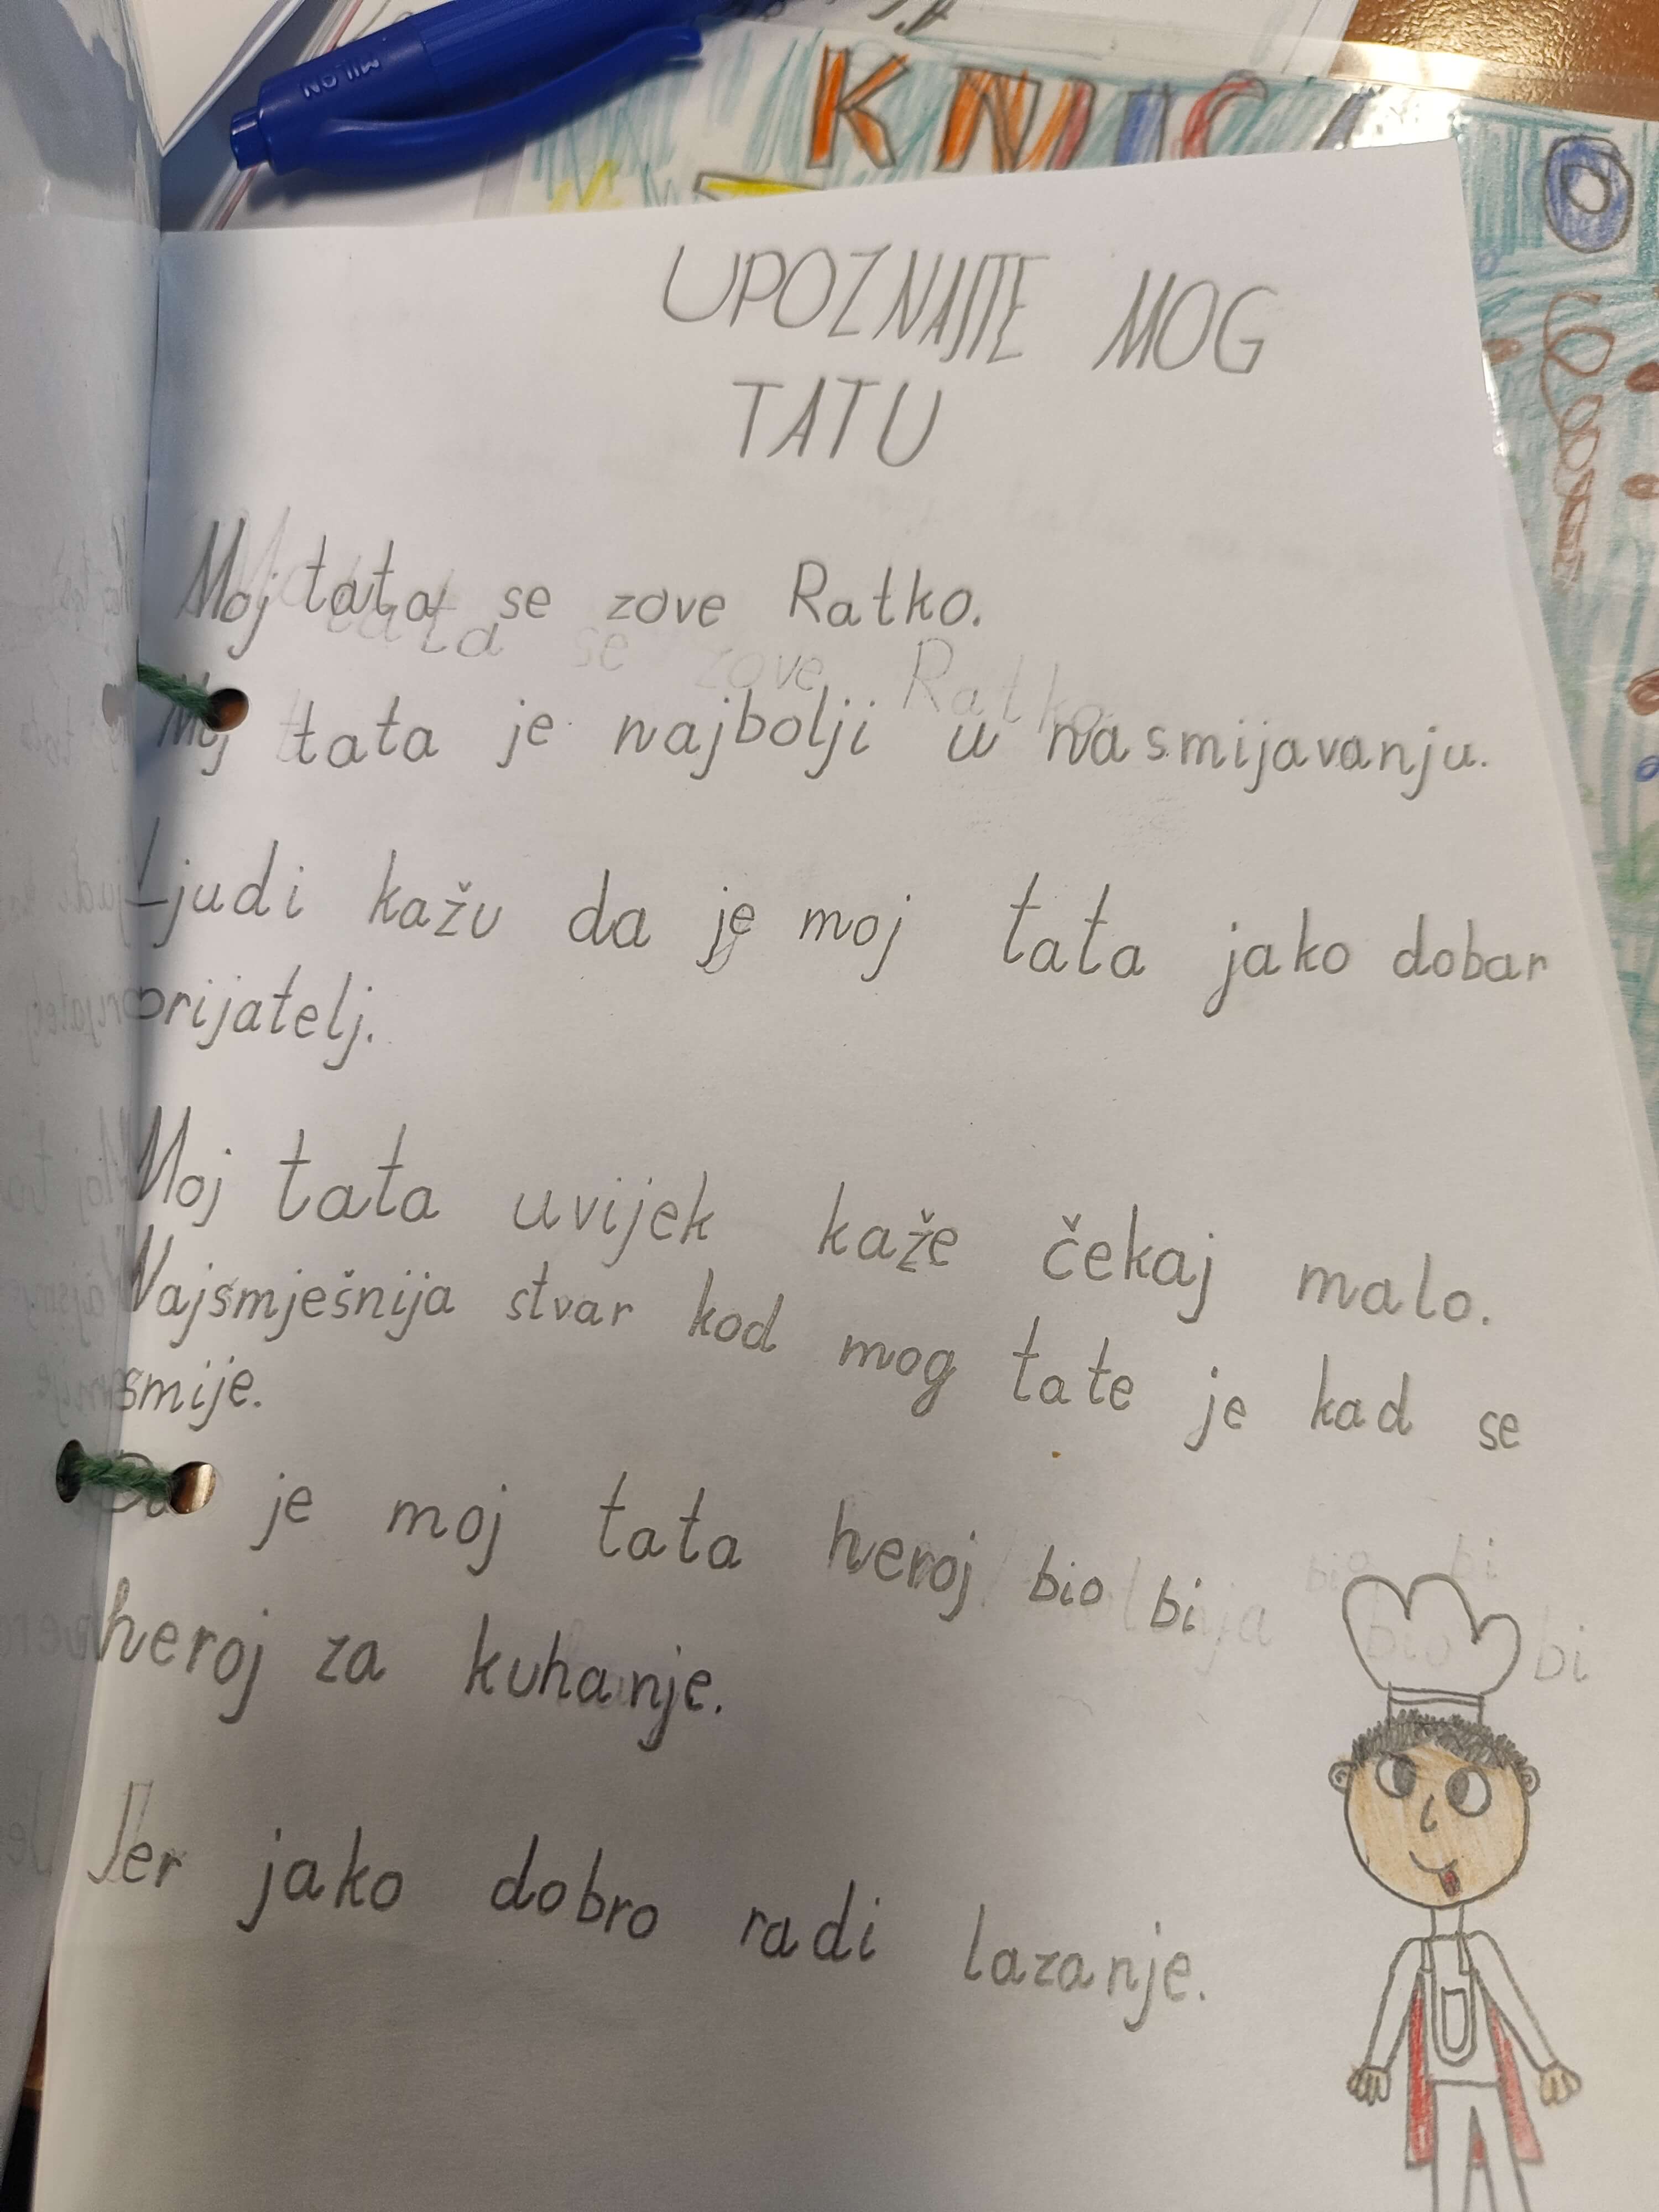 MILAN
KNJIG
UPOZNAJTE MOG
TATU
Moj tata se zove Ratko.
Moj tata je najbolji u nasmijavanju.
Ljudi kažu da je moj tata jako dobar
prijatelj.
Moj tata uvijek kaže čekaj malo.
Najsmješnija stvar kod mog tate je kad se
smije.
Da je moj tata heroj bio bi
heroj za kuhanje.
Jer jako dobro radi lazanje.